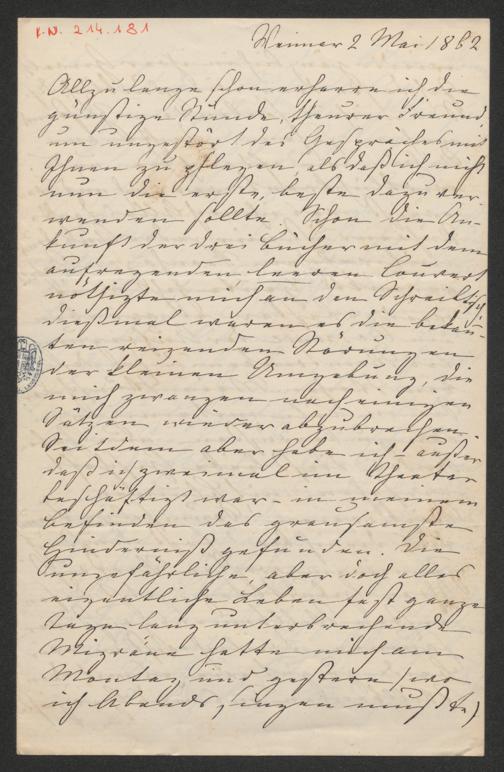 I.N. 214.181
Weimar 2 Mai 1862
Allzulange schon erharre ich die
günstige Stunde, theurer Freund,
um ungestört des Gespräches mit
Ihnen zu pflegen, als daß ich nicht
nun die erste, beste dazu ver-
wenden sollte. Schon die An-
kunft der drei Bücher mit dem
aufregenden, leeren Couvert
nöthigte mich an den Schreibtisch,
dießmal waren es die bekann-
ten reizenden Störungen
der kleinen Umgebung, die
mich zwangen nach einigen
Sätzen wieder abzubrechen.
Seitdem aber habe ich – außer
daß ich zweimal im Theater
beschäftigt war – in meinem
Befinden das grausamste
Hinderniß gefunden. Die
ungefährliche, aber doch alles
eigentliche Leben fast ganze
Tage lang unterbrechende
Migräne hatte mich am
Montag und gestern (wo
ich Abends singen mußte)